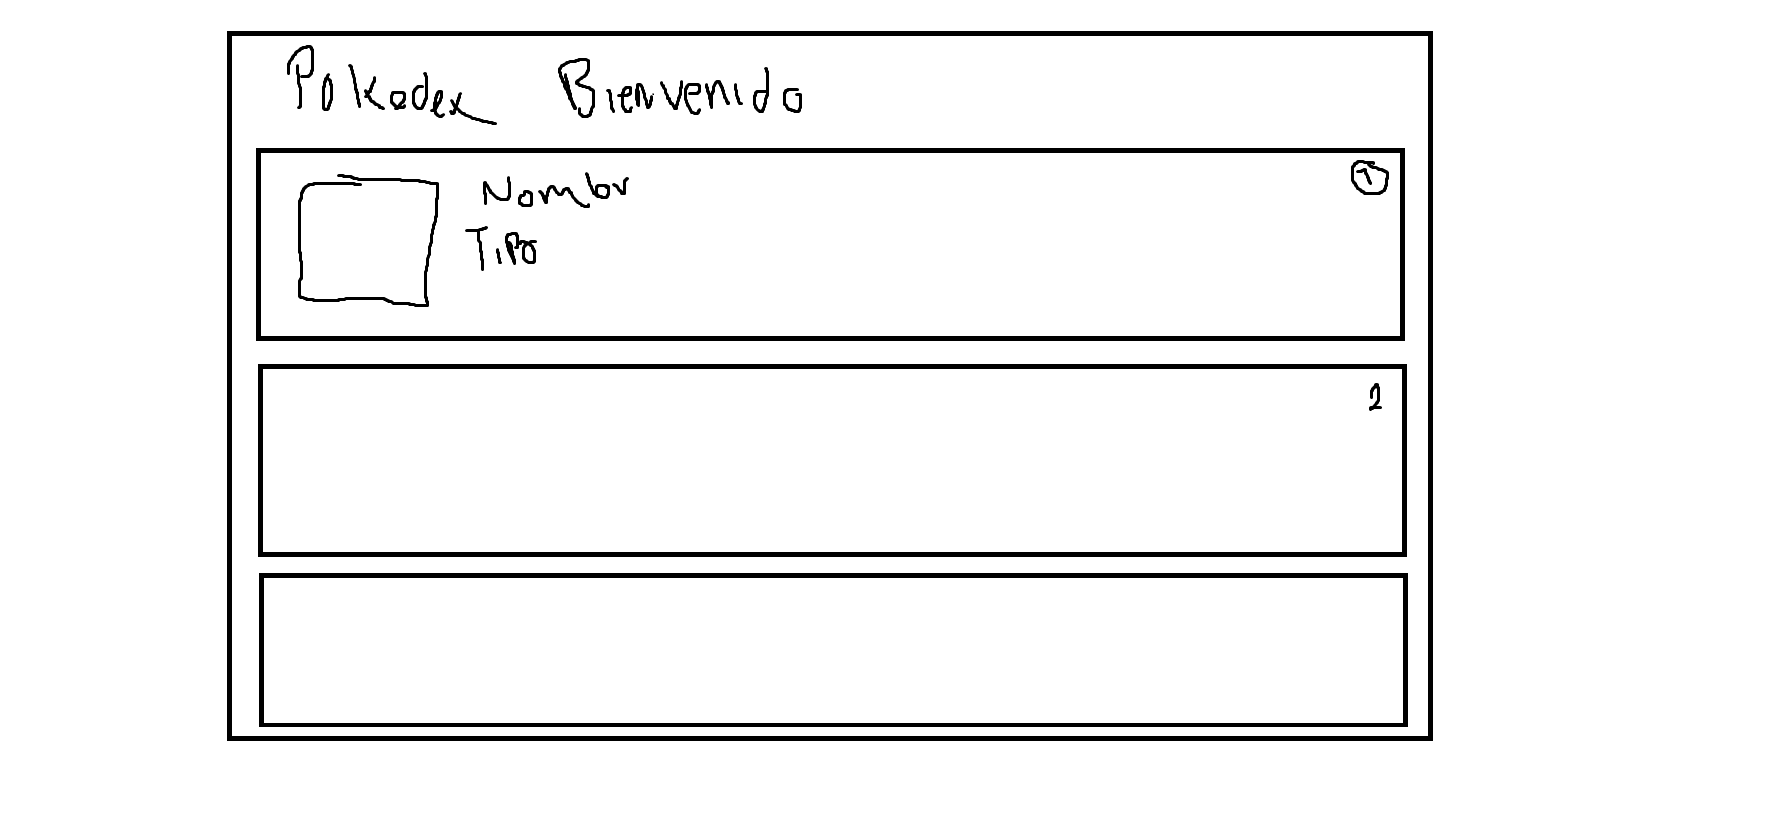 Pokedex Bienvenido
Nombr
1
Tipo
2